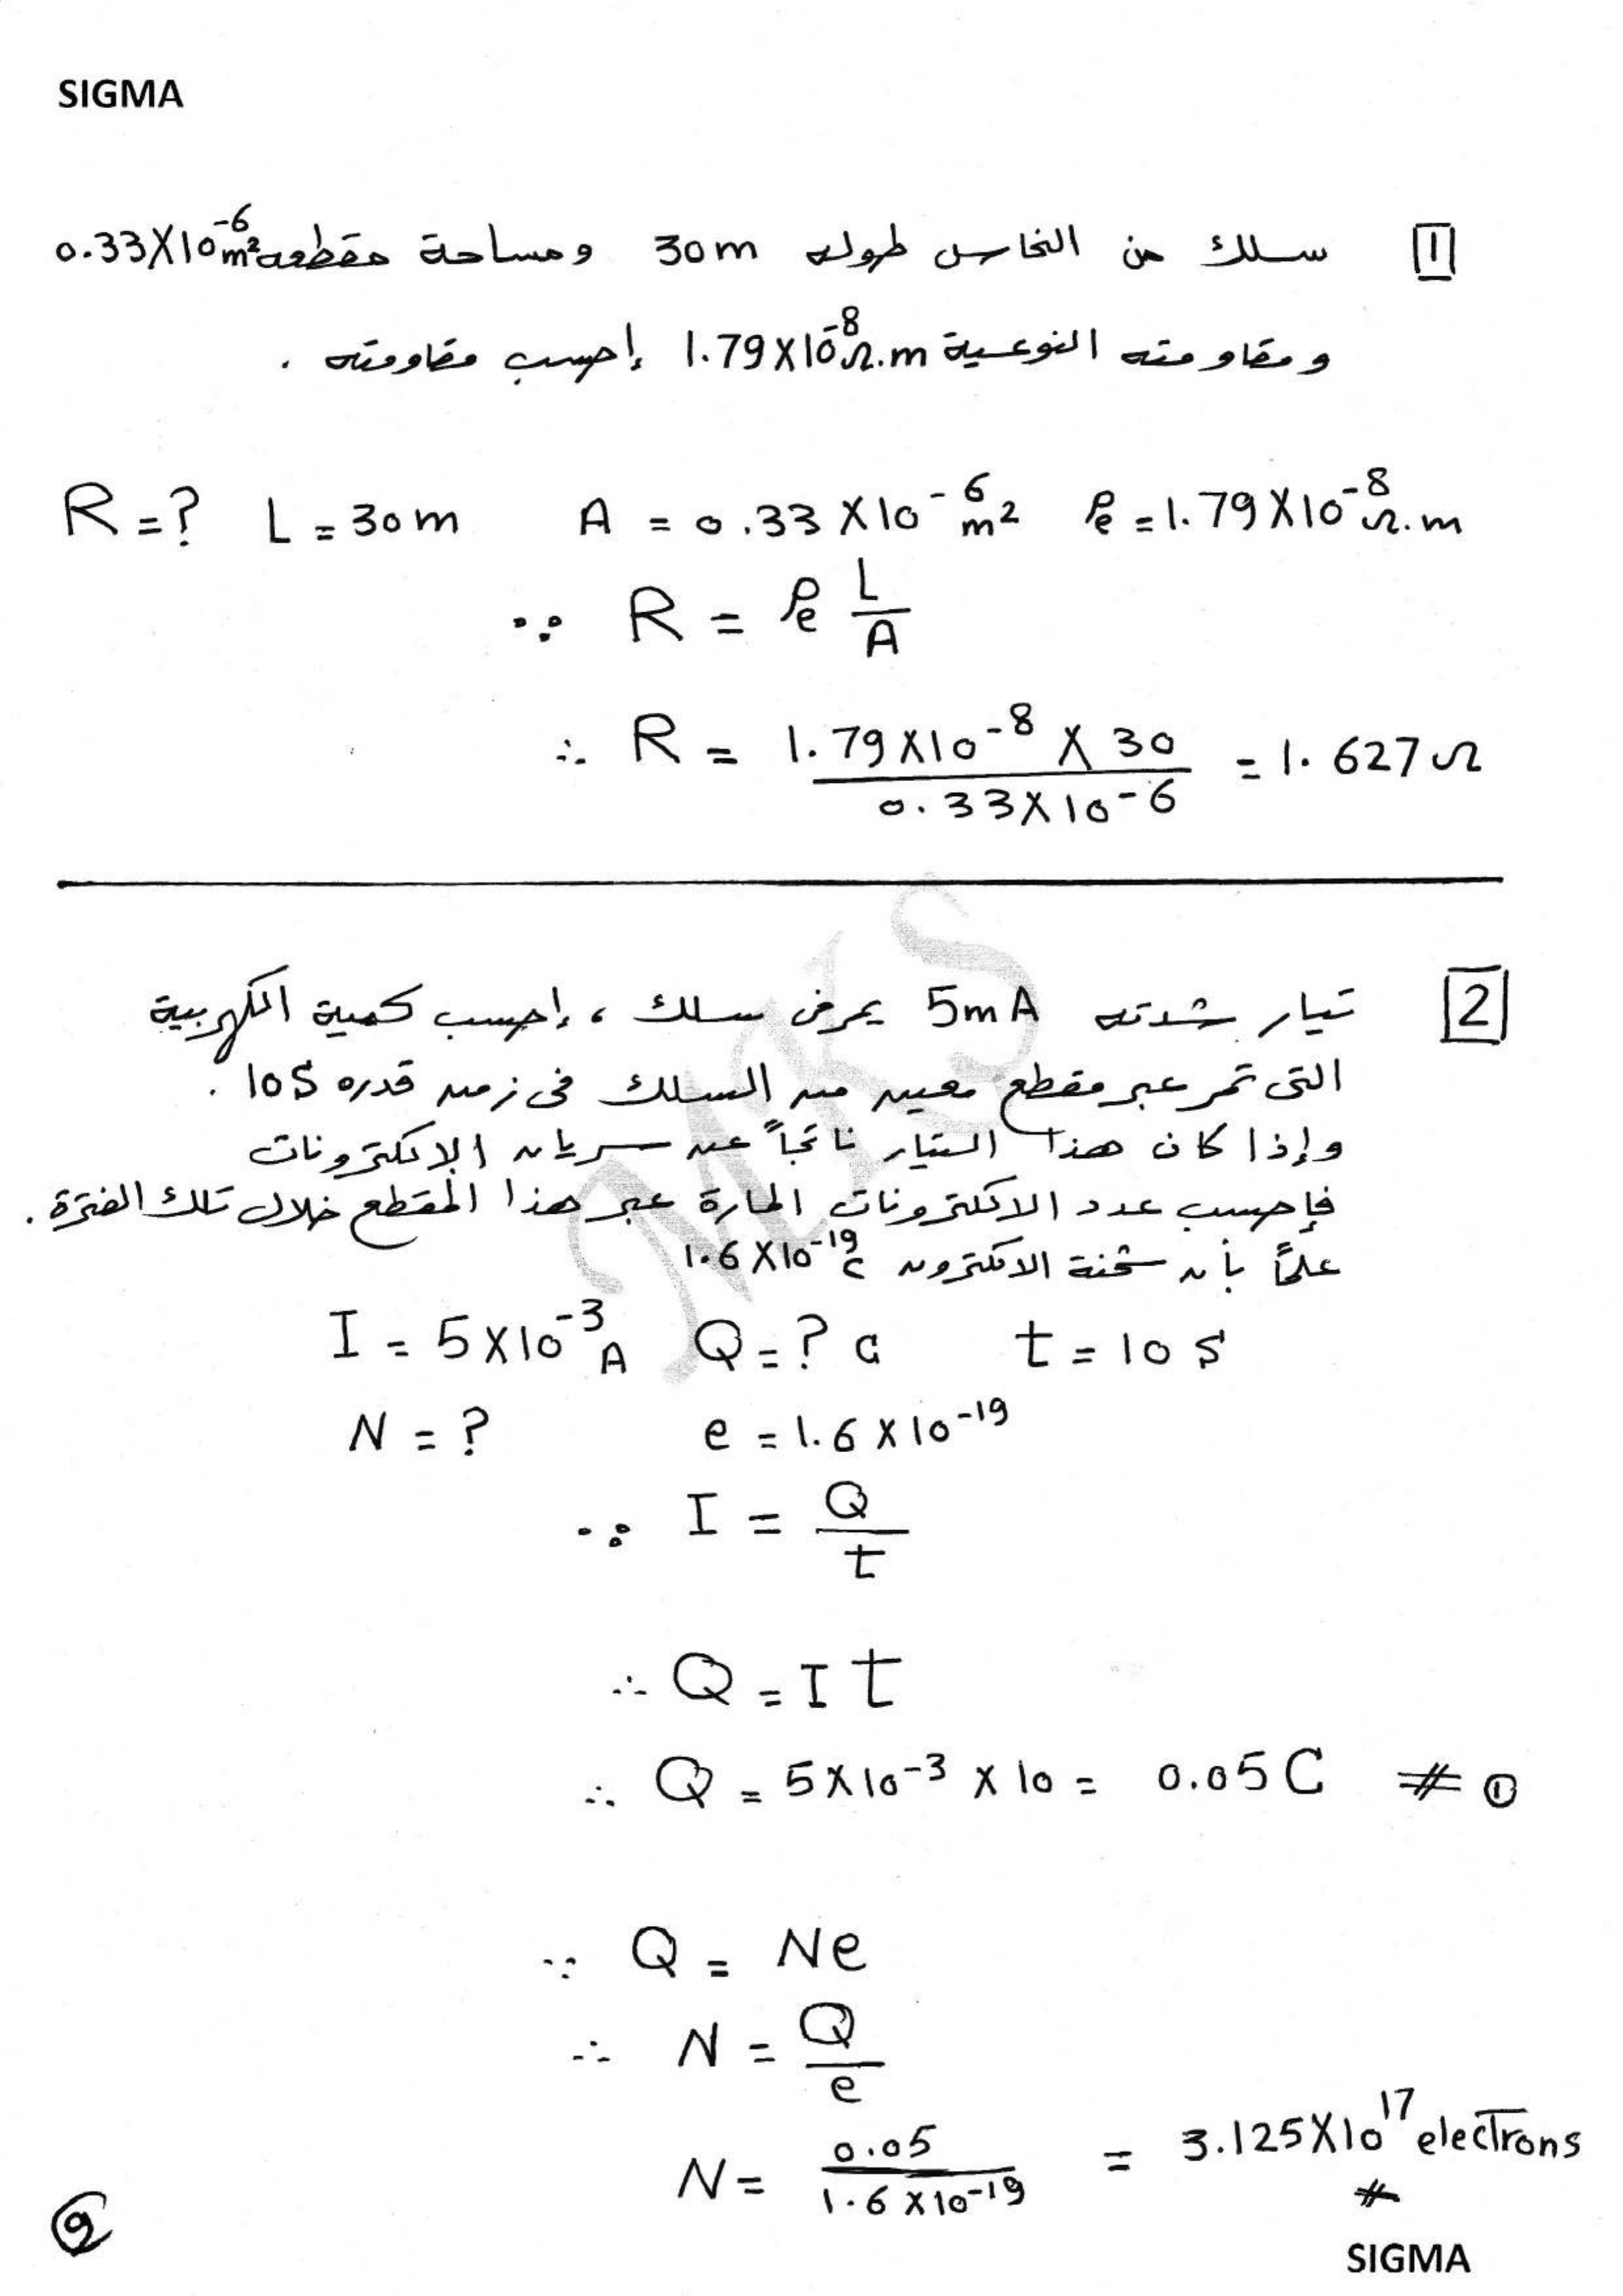 SIGMA
1 سلك من النحاس طوله 30m ومساحة مقطعه 0.33X10⁻⁶m²
ومقاومته النوعية 1.79X10⁻⁸Ω.m إحسب مقاومته .
R=? L=30m A = 0.33 X10⁻⁶ m² ρe = 1.79 X10⁻⁸ Ω.m
∵ R = ρe L/A
∴ R = 1.79X10⁻⁸ X 30 / 0.33X10⁻⁶ = 1.627Ω
2 تيار شدته 5mA يمر فى سلك ، إحسب كمية الكهربية
التى تمر عبر مقطع معين من السلك فى زمن قدره 10S .
وإذا كان هذا التيار ناتجاً عن سريان الإلكترونات
فإحسب عدد الالكترونات المارة عبر هذا المقطع خلال تلك الفترة .
علماً بأن شحنة الالكترون 1.6X10⁻¹⁹C
I = 5X10⁻³A Q=? C t = 10 S
N = ? e = 1.6 X 10⁻¹⁹
∵ I = Q/t
∴ Q = I t
∴ Q = 5X10⁻³ X 10 = 0.05 C # ①
∵ Q = Ne
∴ N = Q/e
N = 0.05 / 1.6X10⁻¹⁹ = 3.125X10¹⁷ electrons
#
SIGMA
MKS